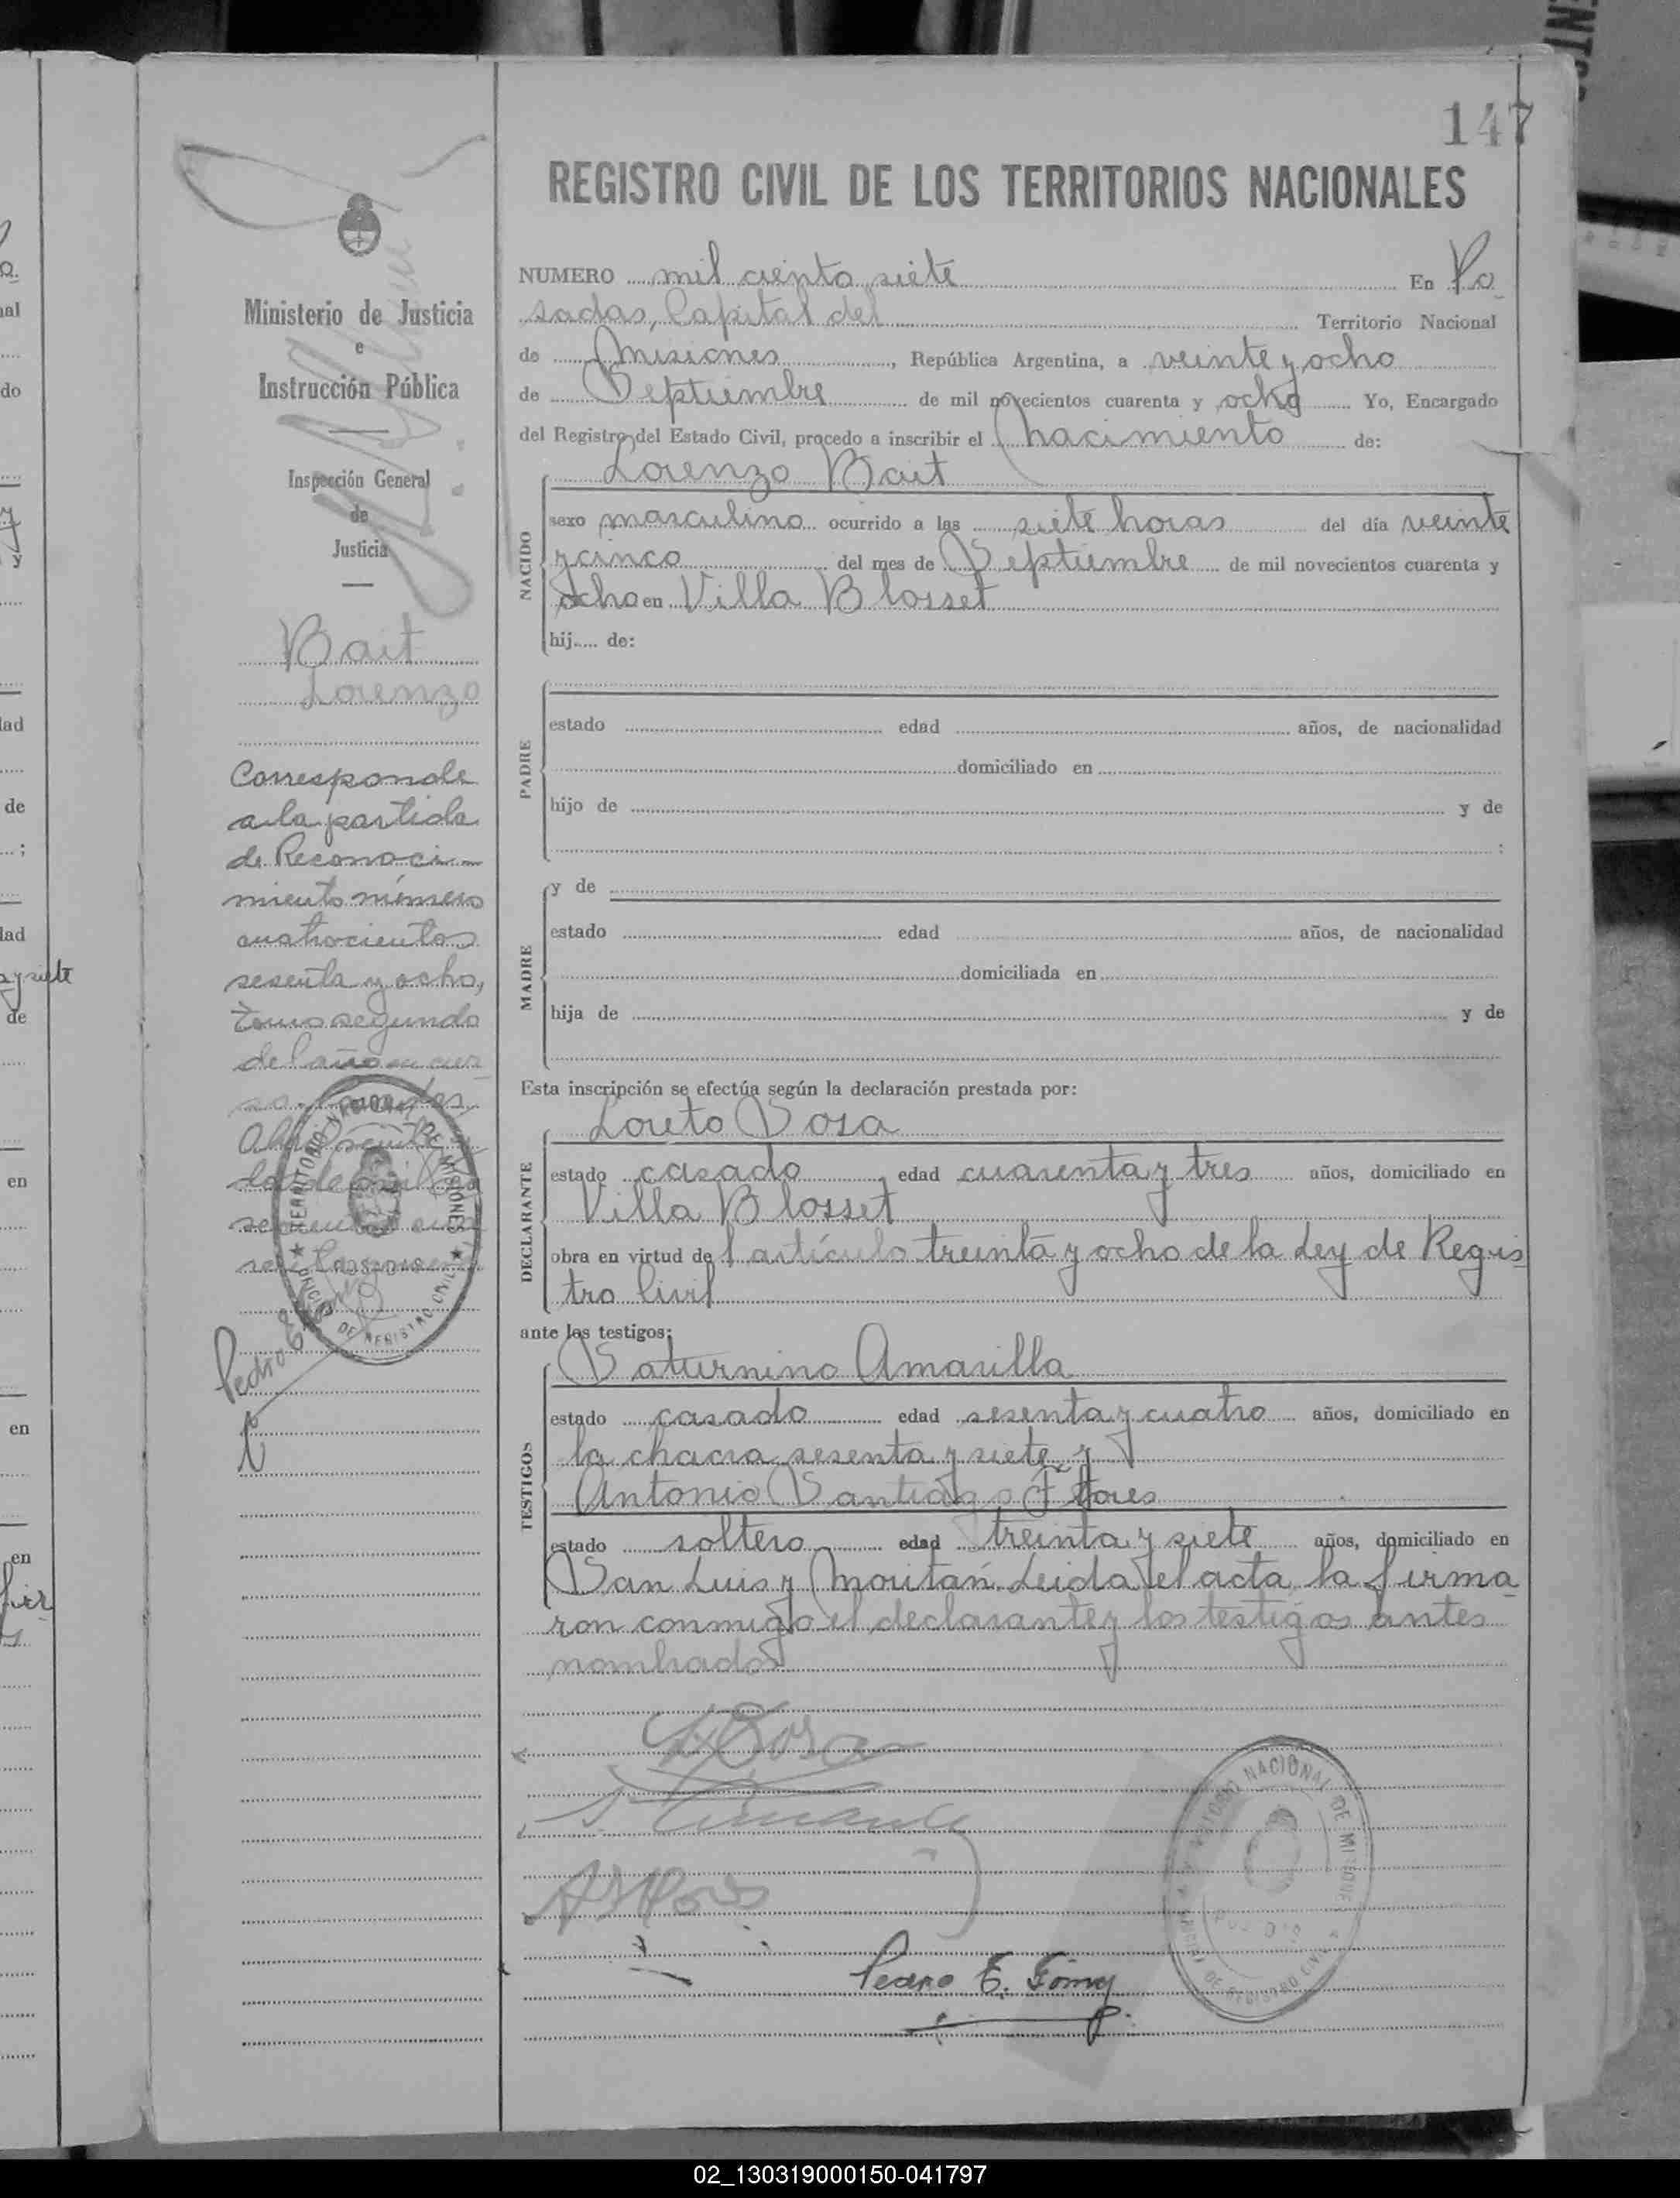 147
REGISTRO CIVIL DE LOS TERRITORIOS NACIONALES
NUMERO mil ciento siete En Po
sadas, Capital del Territorio Nacional
de Misiones, República Argentina, a veinte y ocho
de Septiembre de mil novecientos cuarenta y ocho Yo, Encargado
del Registro del Estado Civil, procedo a inscribir el nacimiento de:
Lorenzo Bait
NACIDO
sexo masculino ocurrido a las siete horas del día veinte
y cinco del mes de Septiembre de mil novecientos cuarenta y
ocho en Villa Blosset
hij.... de:
PADRE
estado edad años, de nacionalidad
domiciliado en
hijo de y de
:
MADRE
y de
estado edad años, de nacionalidad
domiciliada en
hija de y de
Esta inscripción se efectúa según la declaración prestada por:
Loreto Sosa
DECLARANTE
estado casado edad cuarenta y tres años, domiciliado en
Villa Blosset
obra en virtud del artículo treinta y ocho de la Ley de Regis
tro Civil
ante los testigos:
Saturnino Amarilla
TESTIGOS
estado casado edad sesenta y cuatro años, domiciliado en
la chacra sesenta y siete y
Antonio Santiago Flores
estado soltero edad treinta y siete años, domiciliado en
San Luis y Moritán. Leida el acta, la firma
ron conmigo el declarante y los testigos antes
nombrados
L. Sosa
ASFlores
Pedro E. Gómez
TERRITORIO NACIONAL DE MISIONES
POSADAS
OFICINA DE REGISTRO CIVIL
Ministerio de Justicia
e
Instrucción Pública
Inspección General
de
Justicia
Bait
Lorenzo
Corresponde
a la partida
de Reconoci-
miento número
cuatrocientos
sesenta y ocho,
tomo segundo
del año en cur
so. Posadas
Abril
TERRITORIO NACIONAL DE MISIONES
POSADAS
OFICINA DE REGISTRO CIVIL
Pedro E.
al
do
y
lad
de
;
lad
y siete
de
en
en
en
02_130319000150-041797